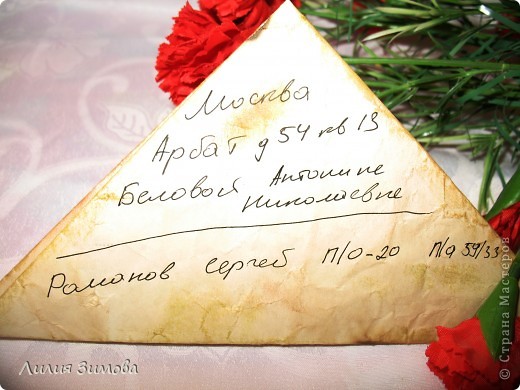 Москва
Арбат д 54 кв 13
Беловой Антонине
Николаевне
Романов Сергей П/О-20 П/я 39/33
Лилия Зимова
© Страна Мастеров